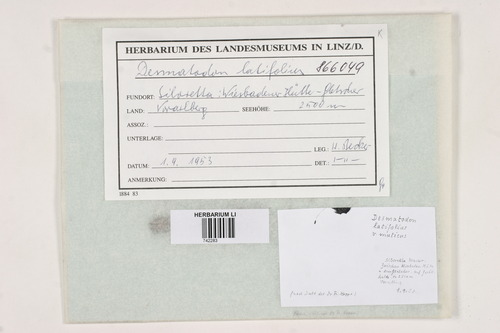 HERBARIUM DES LANDESMUSEUMS IN LINZ/D.
Dermatodon latifolius 866049
FUNDORT: Silvretta: Wiesbadener Hütte - Gletscher
LAND: Vorarlberg SEEHÖHE: 2500 m
ASSOZ.:
UNTERLAGE:
LEG.: H. Becker
DATUM: 1.9.1953 DET.: -"-
ANMERKUNG:
1884 83
HERBARIUM LI
742283
Desmatodon
latifolius
v. muticus